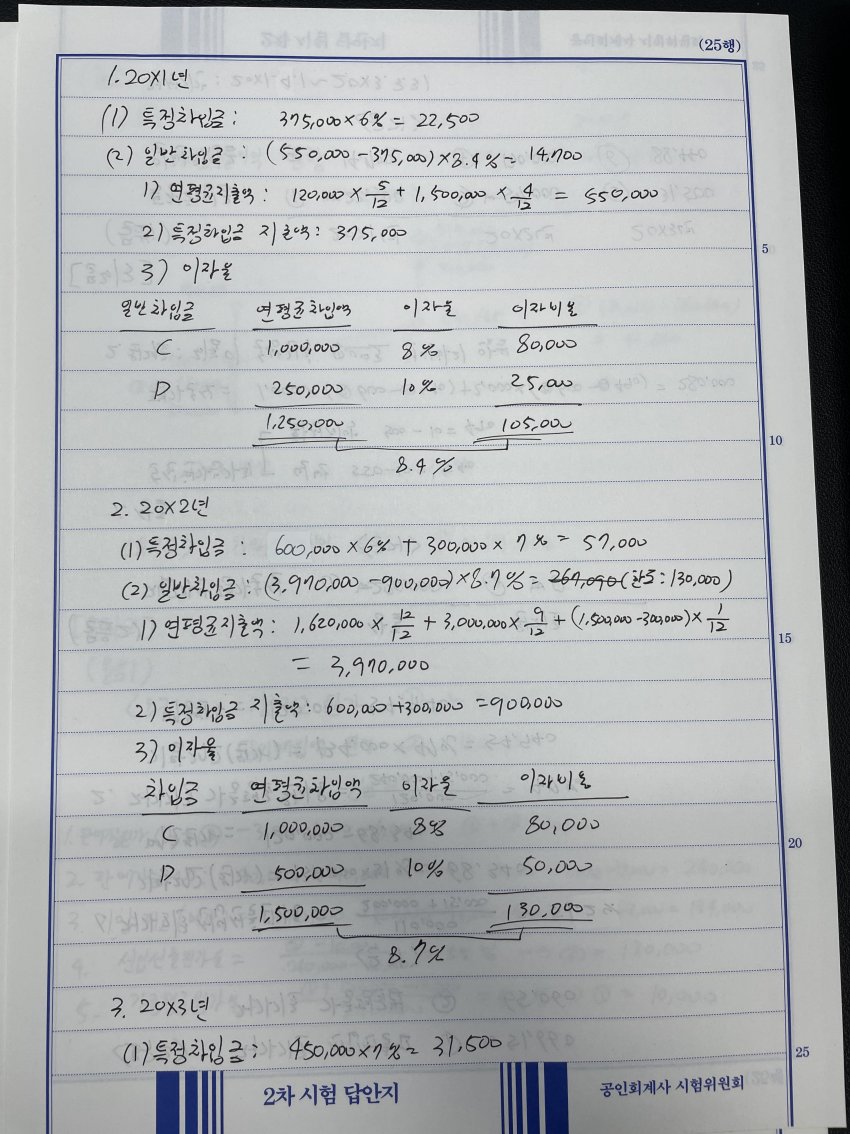 (25행)
1. 20X1년
(1) 특정차입금 : 375,000 × 6% = 22,500
(2) 일반차입금 : (550,000 - 375,000) × 8.4% = 14,700
1) 연평균지출액 : 120,000 × 5/12 + 1,500,000 × 4/12 = 550,000
2) 특정차입금 지출액 : 375,000
5
3) 이자율
일반차입금 연평균차입액 이자율 이자비용
C 1,000,000 8% 80,000
D 250,000 10% 25,000
1,250,000 105,000
10
8.4%
2. 20X2년
(1) 특정차입금 : 600,000 × 6% + 300,000 × 7% = 57,000
(2) 일반차입금 : (3,970,000 - 900,000) × 8.7% = 267,090 (한도 : 130,000)
1) 연평균지출액 : 1,620,000 × 12/12 + 3,000,000 × 9/12 + (1,500,000 - 300,000) × 1/12
15
= 3,970,000
2) 특정차입금 지출액 : 600,000 + 300,000 = 900,000
3) 이자율
차입금 연평균차입액 이자율 이자비용
C 1,000,000 8% 80,000
20
D 500,000 10% 50,000
1,500,000 130,000
8.7%
3. 20X3년
(1) 특정차입금 : 450,000 × 7% = 31,500
25
2차 시험 답안지
공인회계사 시험위원회